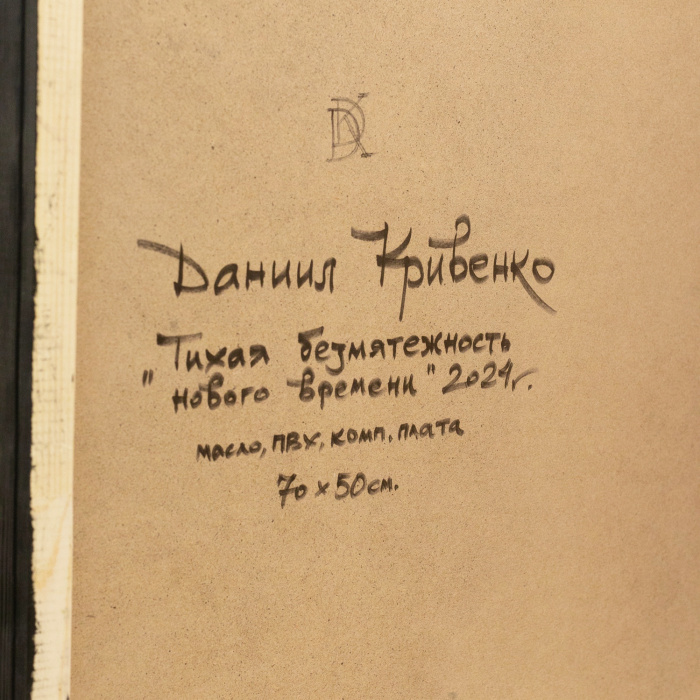 DK
Даниил Кривенко
"Тихая безмятежность
нового времени" 2024г.
масло, ПВХ, комп. плата
70 x 50 см.